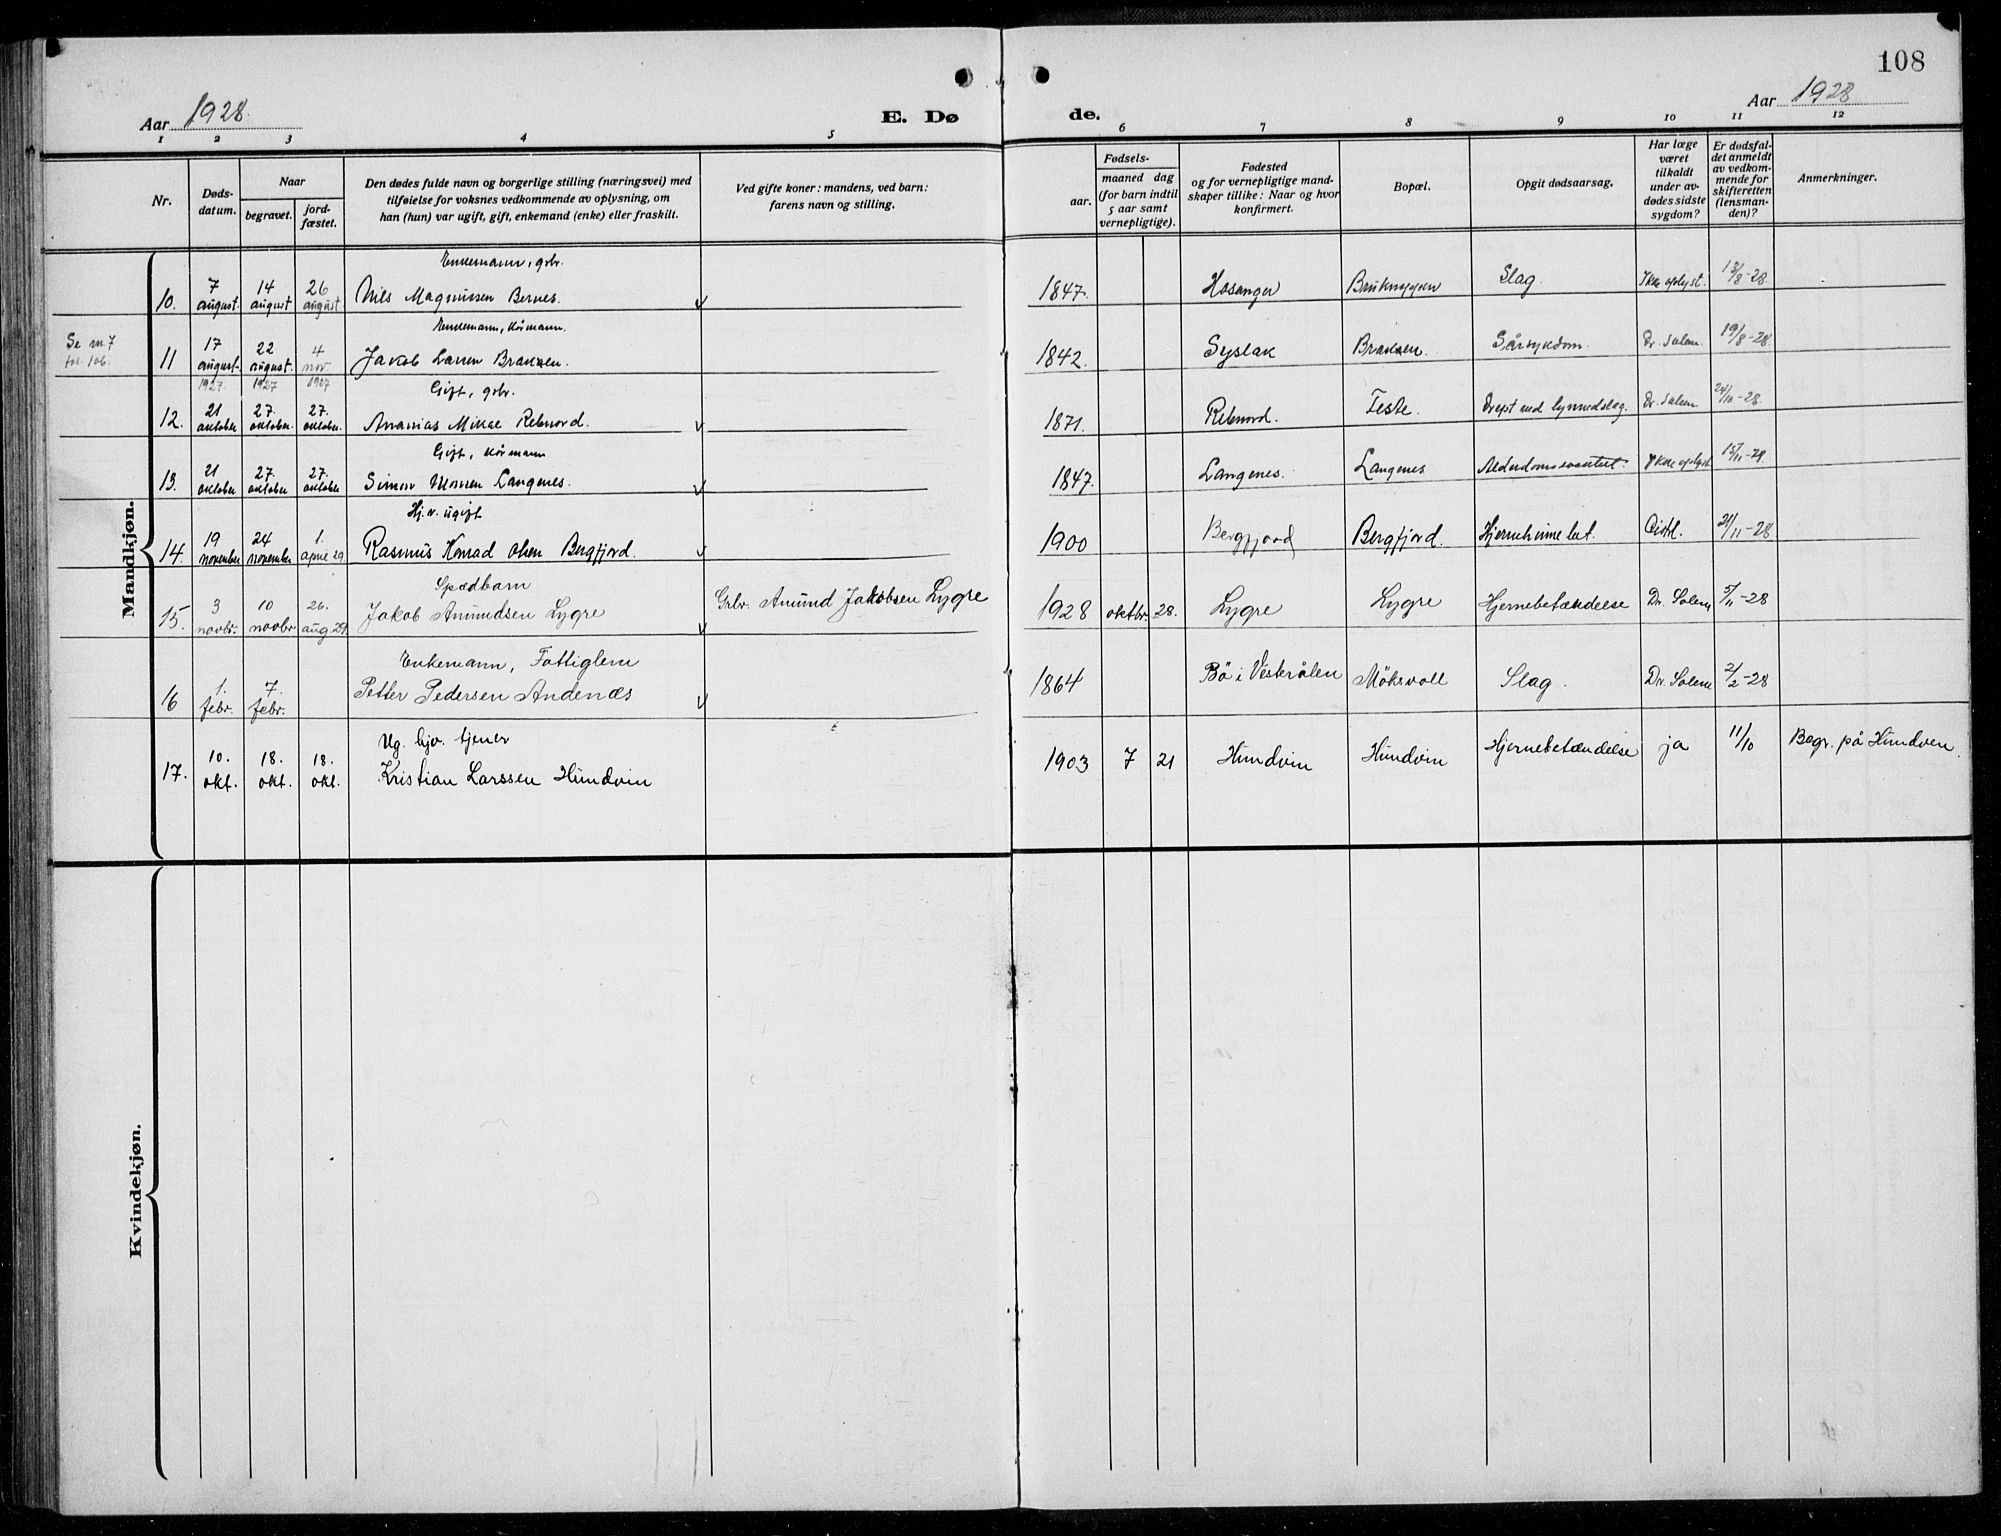 108
Aar 1928.
E. Dø
de.
Aar 1928
1 2 3 4 5 6 7 8 9 10 11 12
Nr.
Døds-
datum.
Naar
begravet.
jord-
fæstet.
Den dødes fulde navn og borgerlige stilling (næringsvei) med
tilføielse for voksnes vedkommende av oplysning, om
han (hun) var ugift, gift, enkemand (enke) eller fraskilt.
Ved gifte koner: mandens, ved barn:
farens navn og stilling.
Fødsels-
aar.
maaned dag
(for barn indtil
5 aar samt
vernepligtige).
Fødested
og for vernepligtige mand-
skaper tillike: Naar og hvor
konfirmert.
Bopæl.
Opgit dødsaarsag.
Har læge
været
tilkaldt
under av-
dødes sidste
sygdom?
Er dødsfal-
det anmeldt
av vedkom-
mende for
skifteretten
(lensman-
den)?
Anmerkninger.
Mandkjøn.
Enkemann, grbr.
10. 7 august. 14 august 26 august Nils Magnussen Bernes. 1847. Hosanger Slag. Ikke oplyst. 13/8-28
Enkemann, kårmann.
Se nr. 7
fol. 106.
11 17 august. 22 august. 4 nov. Jakob Larsen Braksen. 1842. Syslak Braksen. Sårsykdom. Dr. Solem. 19/8-28
1927. 1927 1927 Gift, grbr.
12. 21 oktober 27. oktober. 27. oktober. Ananias Mikae Rebnord. 1871. Rebnord. Feste. Drept ved lynnedslag. Dr. Solem. 24/10-28.
Gift, kårmann
13. 21 oktober 27. oktober 27. oktober Simon Monsen Langenes. 1847. Langenes. Langenes Ikke oplyst 15/11-28
Hj.v. ugift
14. 19 november 24 november 1. april 29 Rasmus Konrad Olsen Bergfjord. 1900 Bergfjord Bergfjord. Hjernehinnebet. 21/11-28
Spædbarn
15. 3 novbr. 10 novbr 26. aug 29. Jakob Amundsen Lygre Grbr. Amund Jakobsen Lygre 1928 oktbr. 28. Lygre Lygre Hjernebetændelse Dr. Solem 5/11-28
Enkemann, Fattiglem
16 1. febr. 7. febr. Petter Pedersen Andenæs 1864 Bö i Vesterålen Möksvoll Slag. Dr. Solem 2/2-28
Ug. hjv. tjener
17. 10. okt. 18. okt. 18. okt. Kristian Larssen Hundvin 1903 7 21 Hundvin Hundvin Hjernebetændelse ja 11/10 Begr. på Hundven.
Kvindekjøn.